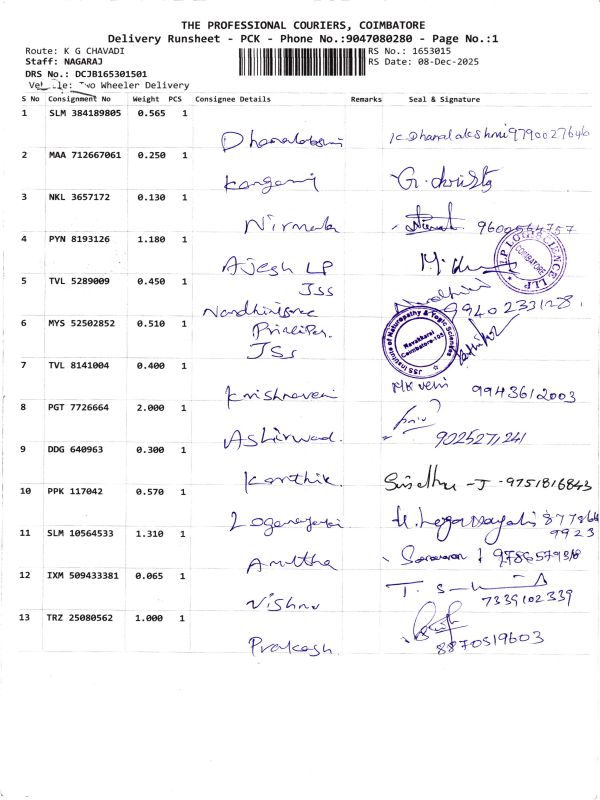 THE PROFESSIONAL COURIERS, COIMBATORE
Delivery Runsheet - PCK - Phone No.:9047080280 - Page No.:1
Route: K G CHAVADI RS No.: 1653015
Staff: NAGARAJ RS Date: 08-Dec-2025
DRS No.: DCJB165301501
Vehicle: Two Wheeler Delivery
S No Consignment No Weight PCS Consignee Details Remarks Seal & Signature
1 SLM 384189805 0.565 1
Dhanalakshmi K. Dhanalakshmi 9790027646
2 MAA 712667061 0.250 1
3 NKL 3657172 0.130 1
Nirmala 9600564757
4 PYN 8193126 1.180 1
Ajesh LP
LP LOGISCIENCE LLP
COIMBATORE
5 TVL 5289009 0.450 1
JSS
9940233128
6 MYS 52502852 0.510 1
JSS
JSS Institute of Naturopathy & Yogic Sciences
Navakkarai
Coimbatore-105
7 TVL 8141004 0.400 1
Krishnaveni MK veni 9943612003
8 PGT 7726664 2.000 1
Ashirwad. 9025271241
9 DDG 640963 0.300 1
Karthik. -J -9751816843
10 PPK 117042 0.570 1
Loganayaki
9923
11 SLM 10564533 1.310 1
Amutha Saravanan
12 IXM 509433381 0.065 1
Vishnu 7339102339
13 TRZ 25080562 1.000 1
Prakash. 8870519603